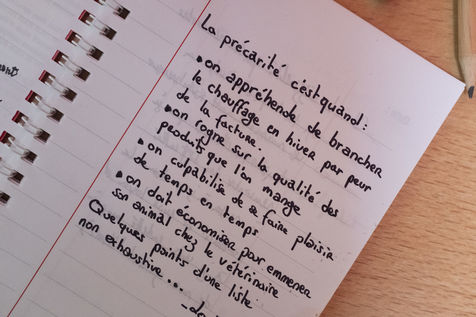 La précarité c'est quand :
• on appréhende de brancher
le chauffage en hiver par peur
de la facture.
• on rogne sur la qualité des
produits que l'on mange
• on culpabilise de se faire plaisir
de temps en temps
• on doit économiser pour emmener
son animal chez le vétérinaire
Quelques points d'une liste
non exhaustive ...